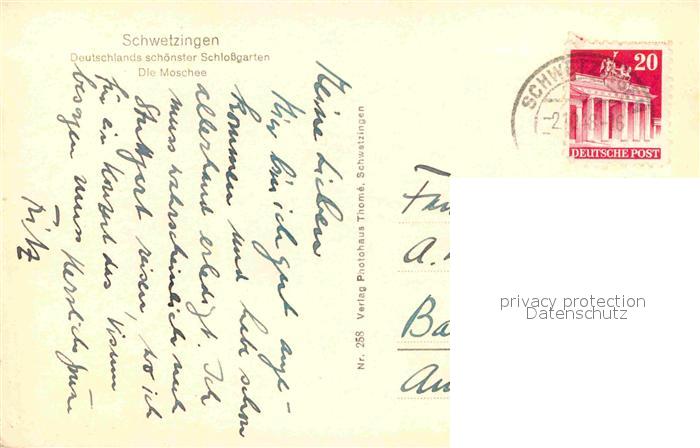 Schwetzingen
Deutschlands schönster Schloßgarten
Die Moschee
Meine Lieben
Hier bin ich gut ange-
kommen und habe schon
allerhand erledigt. Ich
muss wahrscheinlich nach
Stuttgart reisen, wo ich
für ein Konzert das Visum
besorgen muss. Herzliche Grüsse
Fritz
Nr. 258 Verlag Photohaus Thomé, Schwetzingen
20
DEUTSCHE POST
SCHW
A.
Ba
privacy protection
Datenschutz